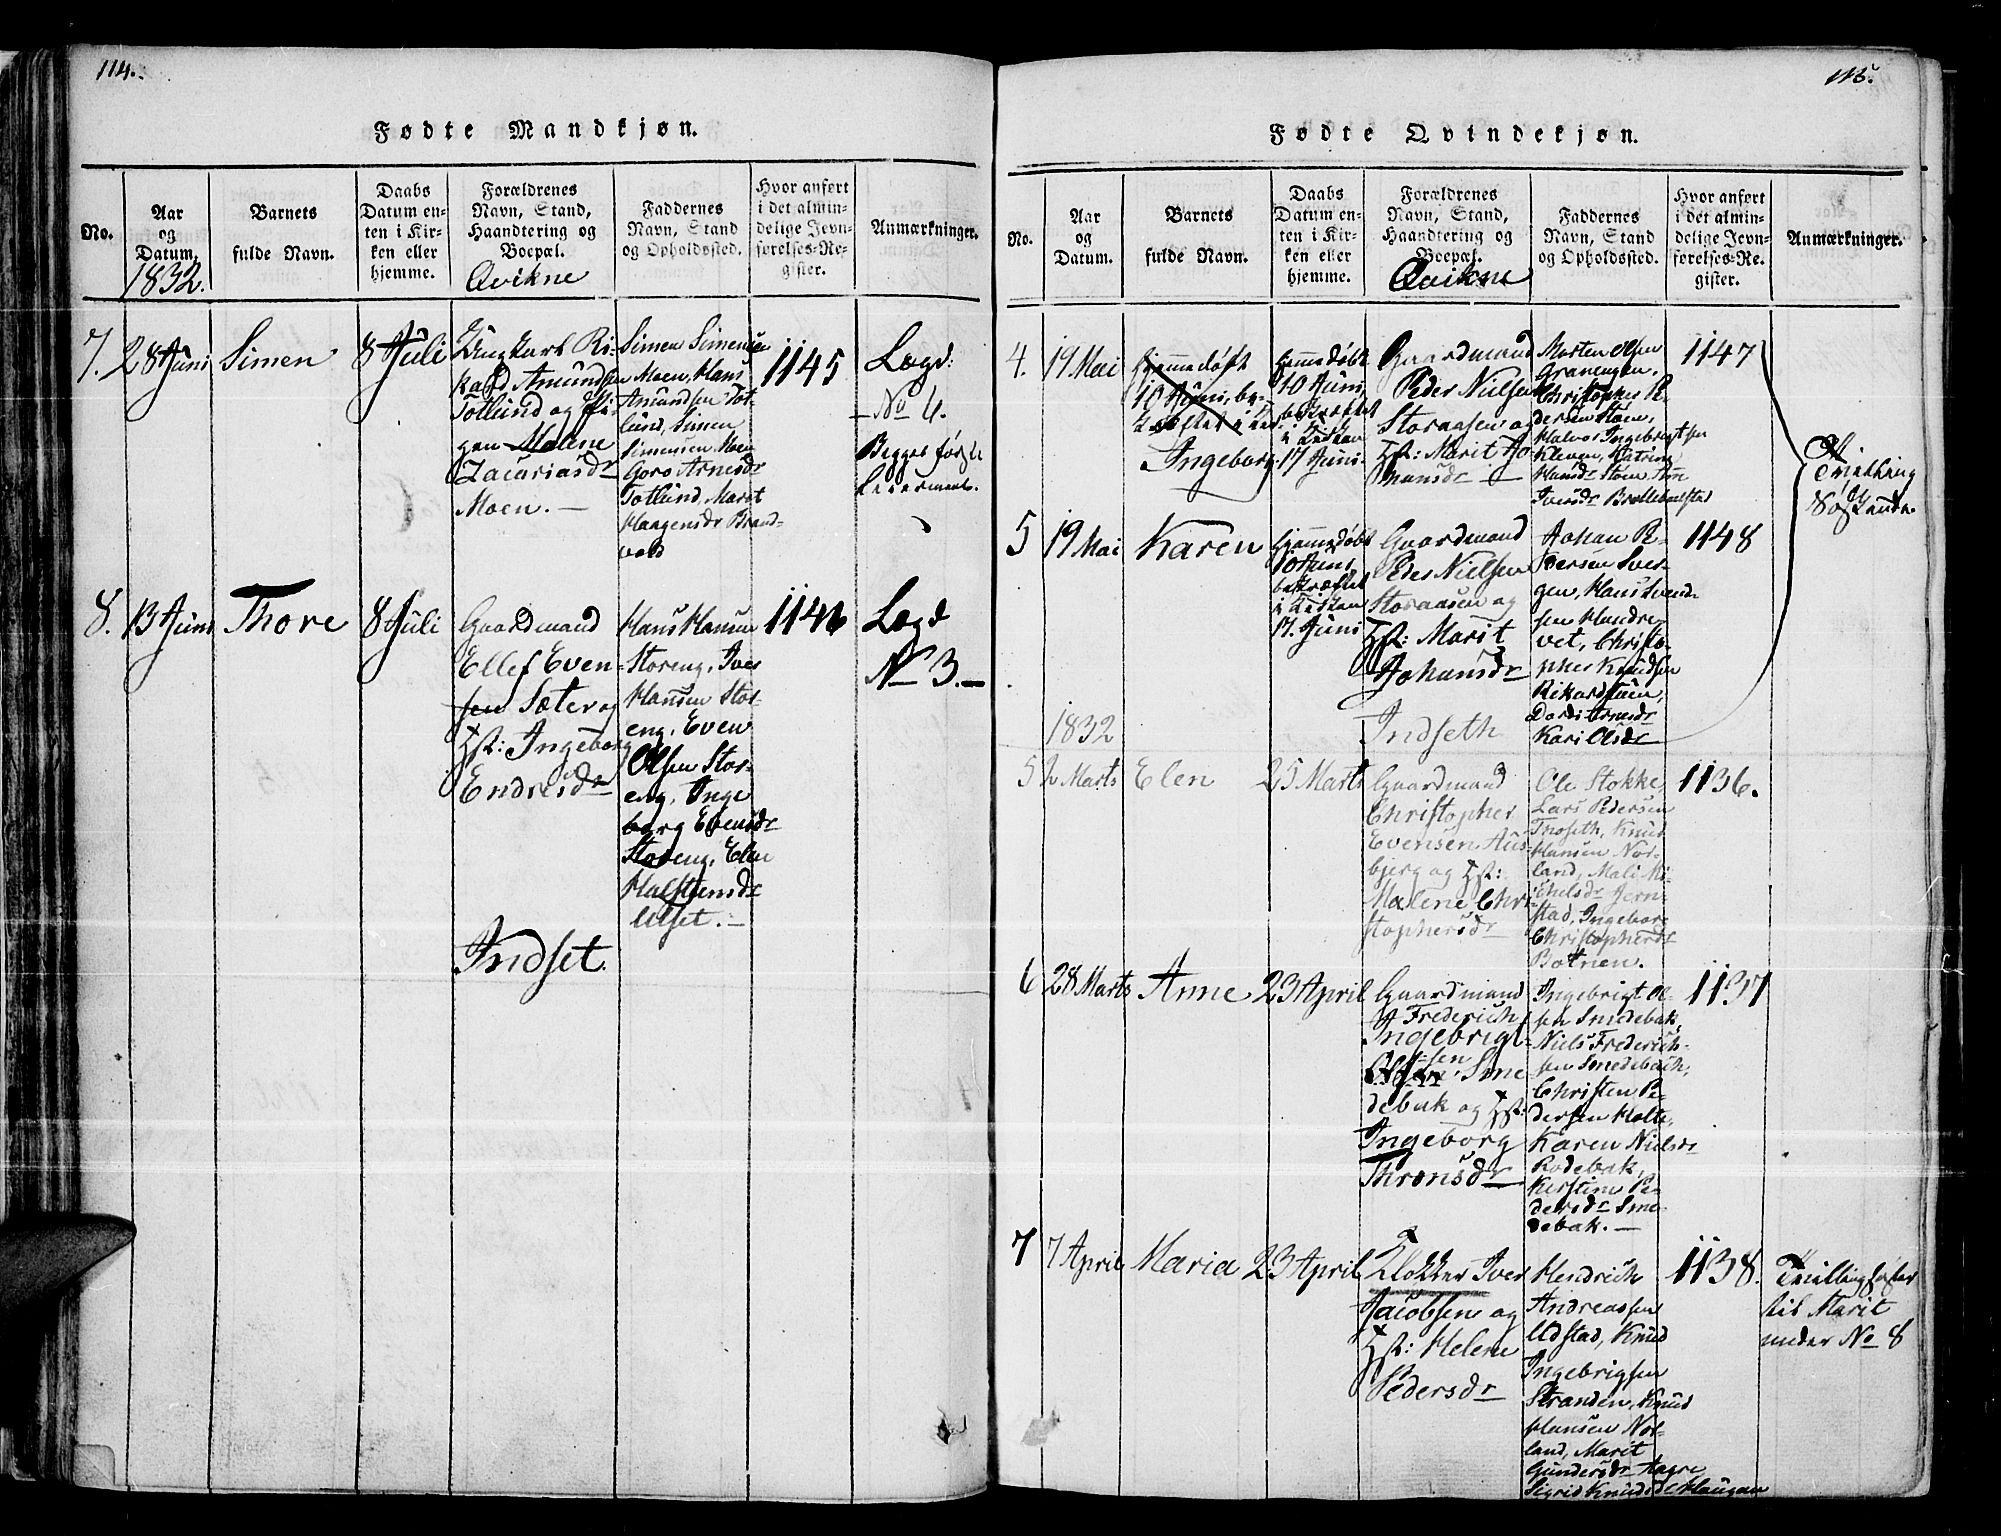 114.
Fødte Mandkjøn.
No.
Aar
og
Datum.
1832.
Barnets
fulde Navn.
Daabs
Datum en-
ten i Kir-
ken eller
hjemme.
Forældrenes
Navn, Stand,
Haandtering og
Boepæl.
Qvikne
Faddernes
Navn, Stand
og Opholdssted.
Hvor anført
i det almin-
delige Jevn-
førelses-Re-
gister.
Anmærkninger.
7.
28 Juni
Simen
8 Juli
Ungkarl Ri-
kard Amundsen
Totlund og Pi-
gen Malene
Zacariasdr
Moen. —
Simen Simensen
Moen, Hans
Amundsen Tot-
lund, Simen
Simensen Moen
Goro Arnesdr
Totlund, Marit
Haagensdr Brand-
vold
1145
Lægd:
No 6.
Begges første
Leiermaal.
8.
13 Juni
Thore
8 Juli
Gaardmand
Ellef Even-
sen Sæter og
Hst: Ingeborg
Endresdr
Hans Hansen
Storeng, Iver
Hansen Stor-
eng, Even
Olsen Stor-
eng, Inge
borg Evensdr
Storeng, Elen
Halstensdr
Ulset. —
1146
Lægd
No 3. —
Indset.
115.
Fødte Qvindekjøn.
No.
Aar
og
Datum.
Barnets
fulde Navn.
Daabs
Datum en-
ten i Kir-
ken eller
hjemme.
Forældrenes
Navn, Stand,
Haandtering og
Boepæl.
Qvikne
Faddernes
Navn, Stand
og Opholdssted.
Hvor anført
i det almin-
delige Jevn-
førelses-Re-
gister.
Anmærkninger.
4.
19 Mai
hjemmedøft
10 Juni, be-
Ingeborg
hjemmedøbt
10 Juni,
bekræftet
i Kirken
17 Juni
Gaardmand
Peder Nielsen
Storaasen og
Hst: Marit Jo
hansdr —
Morten Olsen
Granengen,
Christopher Pe-
dersen Støen,
Halvor Ingebrigtsen
Kleven, Katrine
Hansdr Støen
Iversdr
1147
Tvilling
Søskende.
5
19 Mai
Karen
hjemmedøbt
10 Juni
bekræftet
i Kirken
17. Juni
Gaardmand
Peder Nielsen
Storaasen og
Hst: Marit
Johansdr
Johan Pe-
dersen Sver-
gen, Hans Svend-
sen
vet, Christo-
pher Knudsen
Dordi Arnesdr
Kari Olsdr
1148
1832
Indseth
5
2 Marts
Elen
25 Marts
Gaardmand
Christopher
Evensen Aus-
bjerg og Hst:
Malene Chri-
stophersdr
Ole Stokke,
Lars Pedersen
Troseth, Knud
Hansen Nor-
land, Mali Mi-
chelsdr Jern-
stad, Ingeborg
Christophersdr
Botnen.
1136.
6
28 Marts
Anne
23 April
Gaardmand
Frederich
Ingebrigt-
sen
Sme
debak og Hst:
Ingeborg
Thronsdr
Ingebrigt Ol-
sen Smedebak,
Niels Frederich-
sen Smedebach,
Christen Pe-
dersen Holte,
Karen Nielsdr
Rodebak,
Kerstine Pe-
dersdr Sme-
debak. —
1137
7
7 April
Maria
23 April
Klokker Iver
Jacobsen og
Hst: Helene
Pedersdr
Hendrich
Andreassen
Udstad, Knud
Ingebrigsen
Stranden, Knud
Hansen Nor-
land, Marit
Gundersdr Aagre
Sigrid Knudsdr Haugan
1138.
Tvillingsøster
til Marit
under No 8